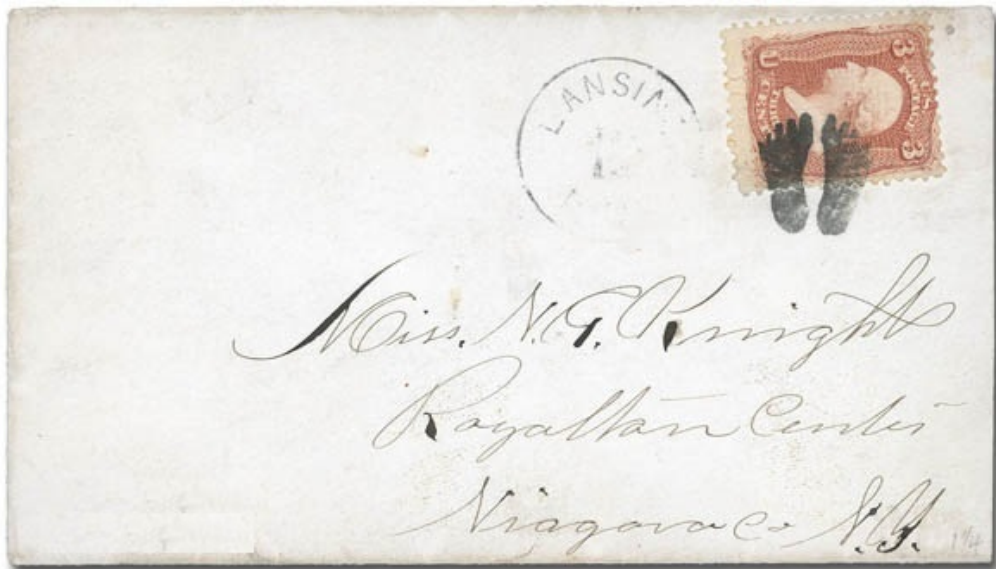 LANSIN
3 U.S. POSTAGE 3
U
Miss. N. G. Knight
Royalton Center
Niagara Co N.Y.